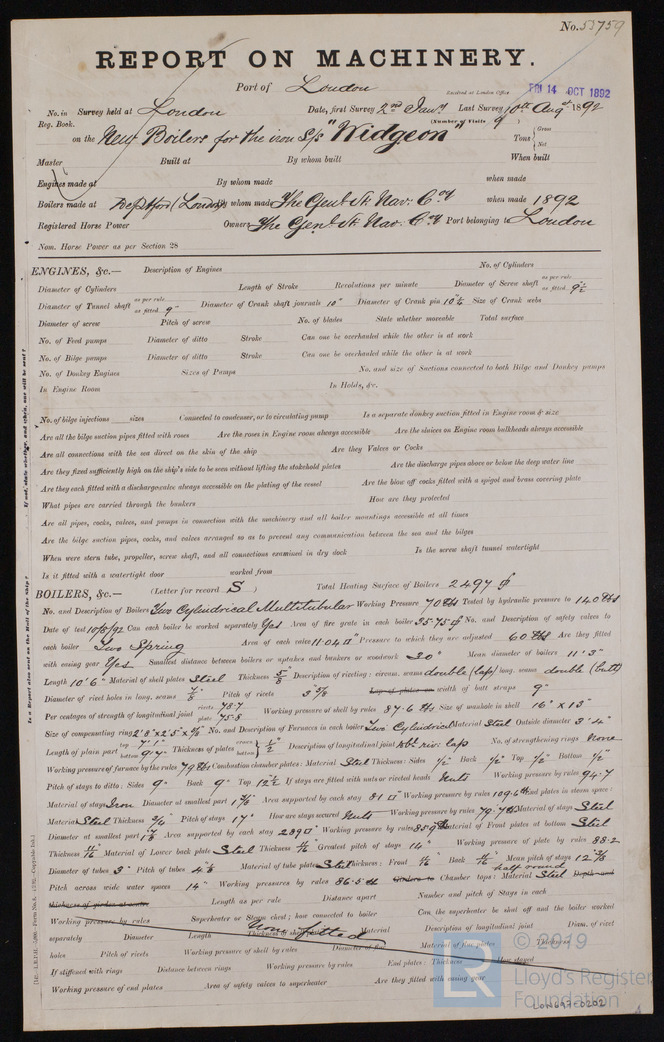 No. 55759
REPORT ON MACHINERY.
Port of London
Received at London Office FRI 14 OCT 1892
No. in Survey held at London Date, first Survey 2nd Jany Last Survey 10th Augst 1892
Reg. Book. (Number of Visits 9)
on the New Boilers for the iron S/s "Widgeon" Tons Gross Net
Master Built at By whom built When built
Engines made at By whom made when made
Boilers made at Deptford (London) By whom made The Genl St. Nav. Coy when made 1892
Registered Horse Power Owners The Genl St. Nav. Coy Port belonging to London
Nom. Horse Power as per Section 28
ENGINES, &c.— Description of Engines No. of Cylinders
Diameter of Cylinders Length of Stroke Revolutions per minute Diameter of Screw shaft as per rule as fitted 9½
Diameter of Tunnel shaft as per rule as fitted 9" Diameter of Crank shaft journals 10" Diameter of Crank pin 10¼ Size of Crank webs
Diameter of screw Pitch of screw No. of blades State whether moveable Total surface
No. of Feed pumps Diameter of ditto Stroke Can one be overhauled while the other is at work
No. of Bilge pumps Diameter of ditto Stroke Can one be overhauled while the other is at work
No. of Donkey Engines Sizes of Pumps No. and size of Suctions connected to both Bilge and Donkey pumps
In Engine Room In Holds, &c.
No. of bilge injections sizes Connected to condenser, or to circulating pump Is a separate donkey suction fitted in Engine room & size
Are all the bilge suction pipes fitted with roses Are the roses in Engine room always accessible Are the sluices on Engine room bulkheads always accessible
Are all connections with the sea direct on the skin of the ship Are they Valves or Cocks
Are they fixed sufficiently high on the ship's side to be seen without lifting the stokehold plates Are the discharge pipes above or below the deep water line
Are they each fitted with a discharge valve always accessible on the plating of the vessel Are the blow off cocks fitted with a spigot and brass covering plate
What pipes are carried through the bunkers How are they protected
Are all pipes, cocks, valves, and pumps in connection with the machinery and all boiler mountings accessible at all times
Are the bilge suction pipes, cocks, and valves arranged so as to prevent any communication between the sea and the bilges
When were stern tube, propeller, screw shaft, and all connections examined in dry dock Is the screw shaft tunnel watertight
Is it fitted with a watertight door worked from
BOILERS, &c.— (Letter for record S ) Total Heating Surface of Boilers 2497
No. and Description of Boilers Two Cylindrical Multitubular Working Pressure 70 lbs Tested by hydraulic pressure to 140 lbs
Date of test 10/8/92 Can each boiler be worked separately Yes Area of fire grate in each boiler 35.75 No. and Description of safety valves to
each boiler Two Spring Area of each valve 11.04 Pressure to which they are adjusted 60 lbs Are they fitted
with easing gear Yes Smallest distance between boilers or uptakes and bunkers or woodwork 20" Mean diameter of boilers 11'.3"
Length 10'.6" Material of shell plates Steel Thickness 5/8 Description of riveting: circum. seams double (lap) long. seams double (butt)
Diameter of rivet holes in long. seams 7/8 Pitch of rivets 3 5/8 Lap of plates or width of butt straps 9"
Per centages of strength of longitudinal joint rivets 78.7 plate 75.8 Working pressure of shell by rules 87.6 lbs Size of manhole in shell 16" x 13"
Size of compensating ring No. and Description of Furnaces in each boiler Two Cylindrical Material Steel Outside diameter 3'.4"
Length of plain part top bottom Thickness of plates crown bottom 1/2 Description of longitudinal joint lap No. of strengthening rings None
Working pressure of furnace by the rules 79 lbs Combustion chamber plates: Material Steel Thickness: Sides 1/2 Back 1/2 Top 1/2 Bottom 1/2
Pitch of stays to ditto: Sides 9" Back 9" Top 12½ If stays are fitted with nuts or riveted heads Nuts Working pressure by rules 94.7
Material of stays Iron Diameter at smallest part Area supported by each stay 81 Working pressure by rules 109.6 lbs End plates in steam space:
Material Steel Thickness Pitch of stays 17" How are stays secured Nuts Working pressure by rules 79.7 lbs Material of stays Steel
Diameter at smallest part Area supported by each stay 289 Working pressure by rules 85.9 lbs Material of Front plates at bottom Steel
Thickness 11/16 Material of Lower back plate Steel Thickness Greatest pitch of stays 14" Working pressure of plate by rules 88.2
Diameter of tubes 3" Pitch of tubes Material of tube plates Steel Thickness: Front Back Mean pitch of stays 12 3/8
Pitch across wide water spaces 14" Working pressures by rules 86.5 lbs Girders to Chamber tops: Material half round Steel Depth and
thickness of girder at centre Length as per rule Distance apart Number and pitch of Stays in each
Working pressure by rules Superheater or Steam chest; how connected to boiler None fitted Can the superheater be shut off and the boiler worked
separately Diameter Length Thickness of shell plates Material Description of longitudinal joint Diam. of rivet
holes Pitch of rivets Working pressure of shell by rules Diameter of flue Material of flue plates Thickness
If stiffened with rings Distance between rings Working pressure by rules End plates: Thickness How stayed
Working pressure of end plates Area of safety valves to superheater Are they fitted with easing gear
Is a Report also sent on the Hull of the Ship? If not, state whether, and when, one will be sent?
© 2019
Lloyd's Register
Foundation
LR
LON697-0202